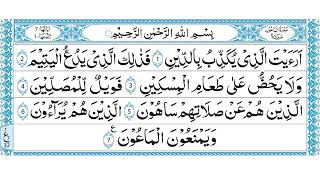 بِسْمِ اللّٰهِ الرَّحْمٰنِ الرَّحِيْمِ
اَرَءَيْتَ الَّذِىْ يُكَذِّبُ بِالدِّيْنِ ۝1 فَذٰلِكَ الَّذِىْ يَدُعُّ الْيَتِيْمَ ۝2
وَلَا يَحُضُّ عَلٰى طَعَامِ الْمِسْكِيْنِ ۝3 فَوَيْلٌ لِّلْمُصَلِّيْنَ ۝4
الَّذِيْنَ هُمْ عَنْ صَلَاتِهِمْ سَاهُوْنَ ۝5 الَّذِيْنَ هُمْ يُرَآءُوْنَ ۝6
وَيَمْنَعُوْنَ الْمَاعُوْنَ ۝7 ع